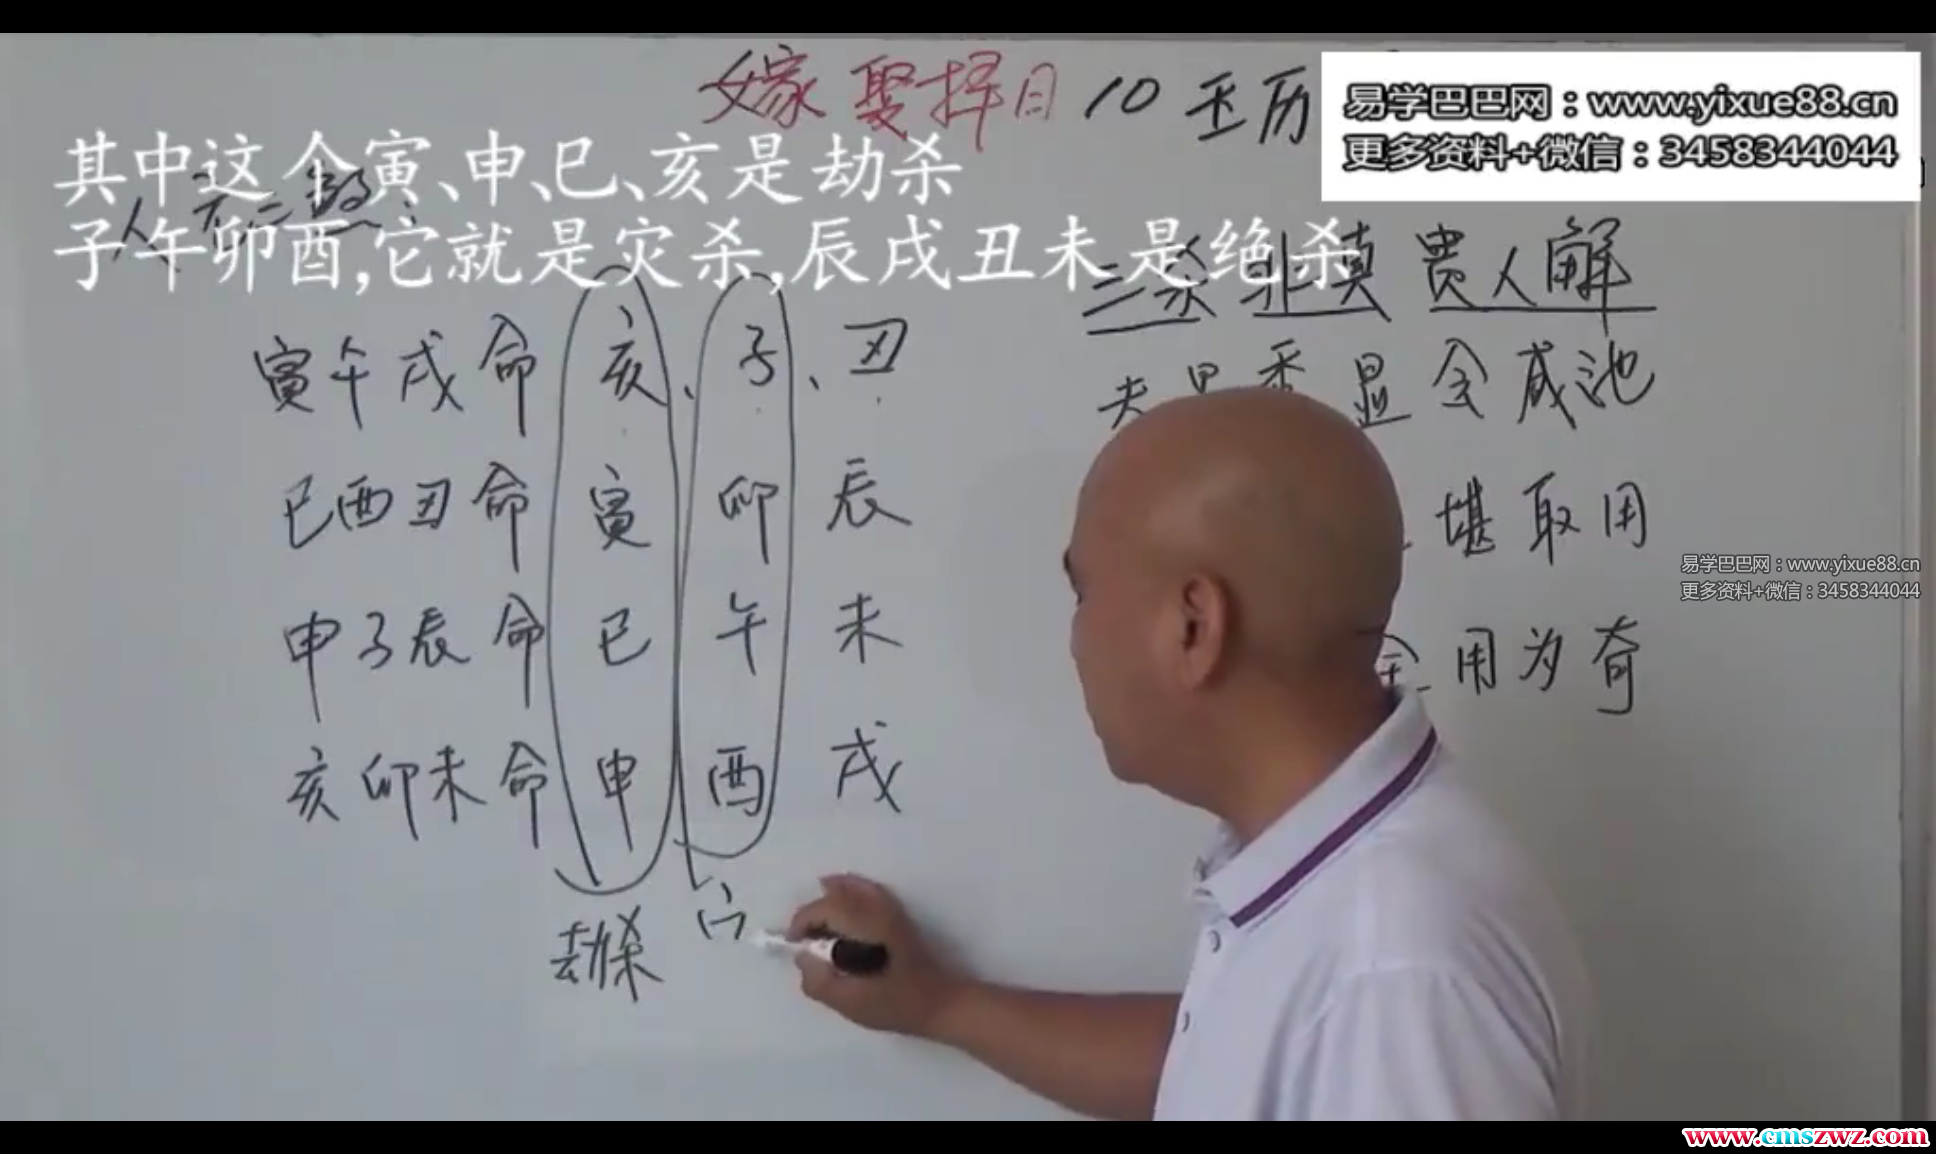 嫁娶择日 10 玉历
易学巴巴网：www.yixue88.cn
更多资料+微信：3458344044
其中这个寅、申、巳、亥是劫杀
子午卯酉,它就是灾杀,辰戌丑未是绝杀
三杀非真贵人解
夫星 显 全 咸池
堪取用
用为奇
寅午戌命 亥、子、丑
巳酉丑命 寅 卯 辰
申子辰命 巳 午 未
亥卯未命 申 酉 戌
劫杀
易学巴巴网：www.yixue88.cn
更多资料+微信：3458344044
www.cmszwz.com